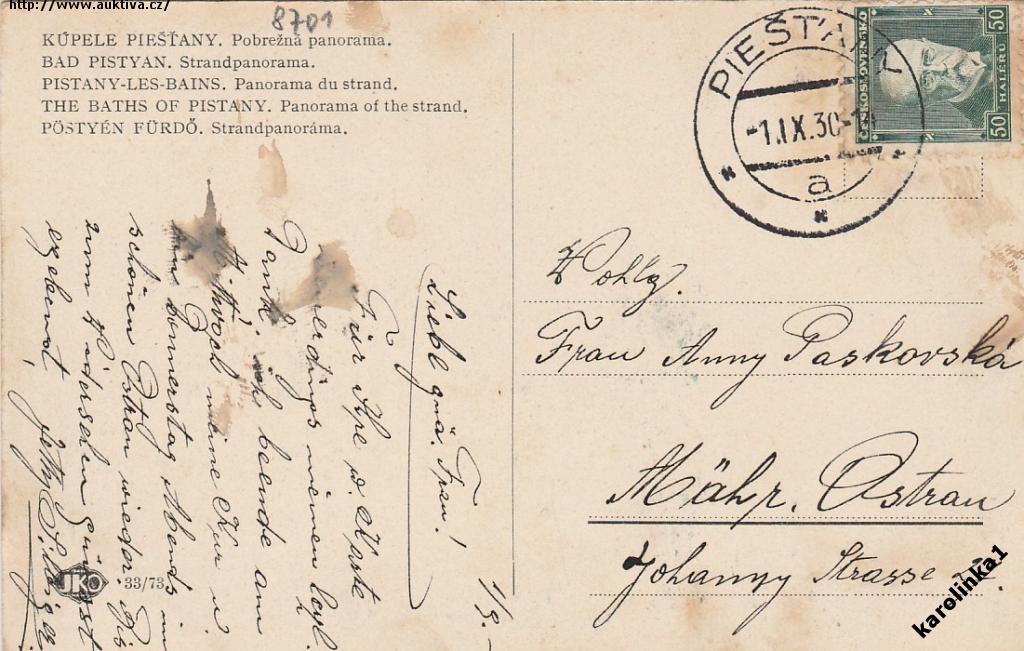 http://www.auktiva.cz/
8701
KÚPELE PIEŠŤANY. Pobrežná panorama.
BAD PISTYAN. Strandpanorama.
PISTANY-LES-BAINS. Panorama du strand.
THE BATHS OF PISTANY. Panorama of the strand.
PÖSTYÉN FÜRDŐ. Strandpanoráma.
PIEŠŤANY
-1.IX.30-
a
ČESKOSLOVENSKO
50 HALÉRŮ 50
1/9.-
Liebl. gnä. Frau!
Für Ihre w. Karte
meinen
Dank, ich beende am
Mittwoch meine Kur u.
Donnerstag Abend im
schönen Ostrau wieder. Bis
zum Wiedersehen
Jetty
Wohlg.
Frau Anny Paskovská
Mähr. Ostrau
Johanny Strasse
JKO 33/73
karolinka1